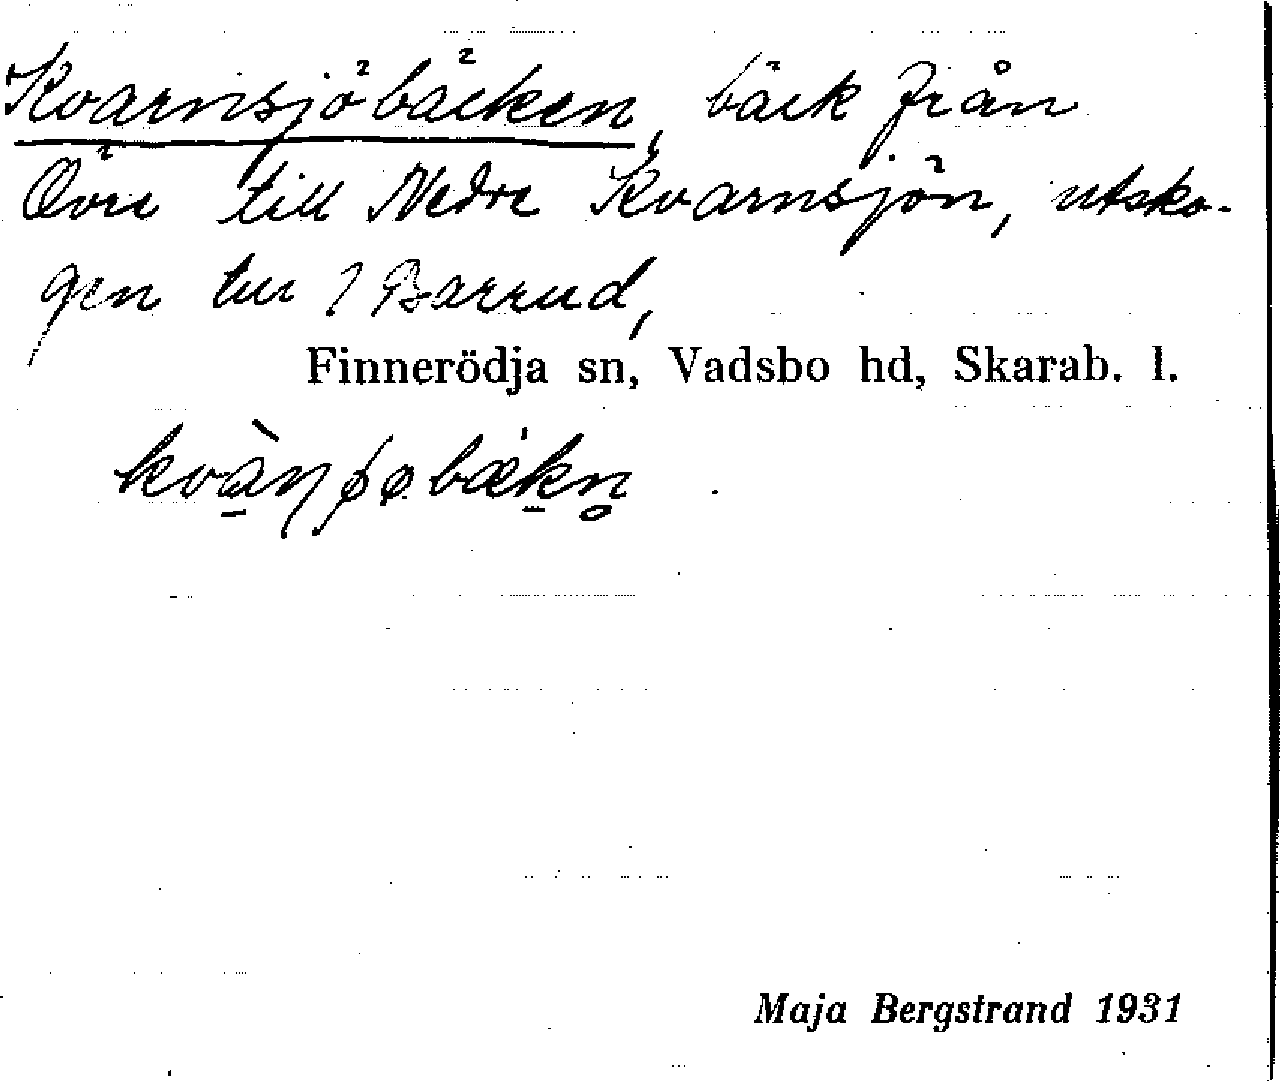 Kvarnsjöbäcken, bäck från
Övre till Nedre Kvarnsjön, utsko-
gen till Barrud,
Finnerödja sn, Vadsbo hd, Skarab. l.
Maja Bergstrand 1931